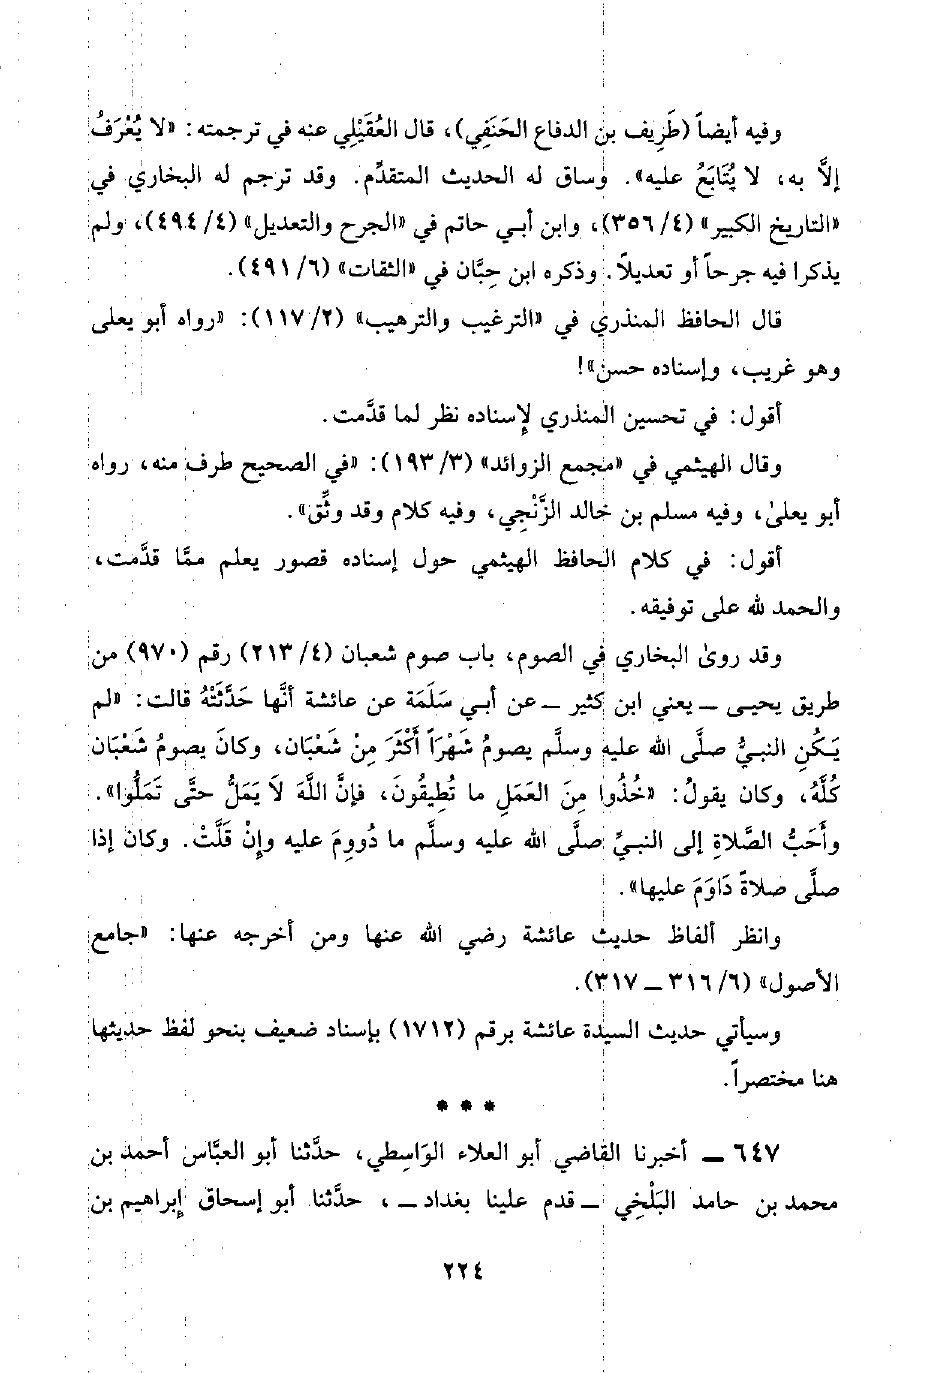 وفيه أيضاً (طَرِيف بن الدفاع الحَنَفِي)، قال العُقَيْلِي عنه في ترجمته: «لا يُعْرَفُ
إلاَّ به، لا يُتَابَعُ عليه». وساق له الحديث المتقدِّم. وقد ترجم له البخاري في
«التاريخ الكبير» (٤/ ٣٥٦)، وابن أبي حاتم في «الجرح والتعديل» (٤/ ٤٩٤)، ولم
يذكرا فيه جرحاً أو تعديلاً. وذكره ابن حِبَّان في «الثقات» (٦/ ٤٩١).
قال الحافظ المنذري في «الترغيب والترهيب» (٢/ ١١٧): «رواه أبو يعلى
وهو غريب، وإسناده حسن»!
أقول: في تحسين المنذري لإسناده نظر لما قدَّمت.
وقال الهيثمي في «مجمع الزوائد» (٣/ ١٩٣): «في الصحيح طرف منه، رواه
أبو يعلىٰ، وفيه مسلم بن خالد الزَّنْجِي، وفيه كلام وقد وثِّق».
أقول: في كلام الحافظ الهيثمي حول إسناده قصور يعلم ممَّا قدَّمت،
والحمد لله على توفيقه.
وقد روىٰ البخاري في الصوم، باب صوم شعبان (٤/ ٢١٣) رقم (٩٧٠) من
طريق يحيـى ــ يعني ابن كثير ــ عن أبي سَلَمَة عن عائشة أنَّها حَدَّثَتْهُ قالت: «لم
يَكُنِ النبيُّ صلَّى الله عليه وسلَّم يصومُ شَهْرَاً أَكْثَرَ مِنْ شَعْبَان، وكانَ يصومُ شَعْبَان
كُلَّهُ، وكان يقولُ: «خُذُوا مِنَ العَمَلِ ما تُطِيقُونَ، فإنَّ اللَّهَ لاَ يَمَلُّ حتَّى تَمَلُّوا».
وأَحَبُّ الصَّلاةِ إلى النبيِّ صلَّى الله عليه وسلَّم ما دُووِمَ عليه وإنْ قَلَّتْ. وكان إذا
صلَّى صلاةً دَاوَمَ عليها».
وانظر ألفاظ حديث عائشة رضي الله عنها ومن أخرجه عنها: «جامع
الأصول» (٦/ ٣١٦ ــ ٣١٧).
وسيأتي حديث السيدة عائشة برقم (١٧١٢) بإسناد ضعيف بنحو لفظ حديثها
هنا مختصراً.
* * *
٦٤٧ ــ أخبرنا القاضي أبو العلاء الوَاسِطي، حدَّثنا أبو العبَّاس أحمد بن
محمد بن حامد البَلْخِي ــ قدم علينا بغداد ــ ، حدَّثنا أبو إسحاق إبراهيم بن
٢٢٤